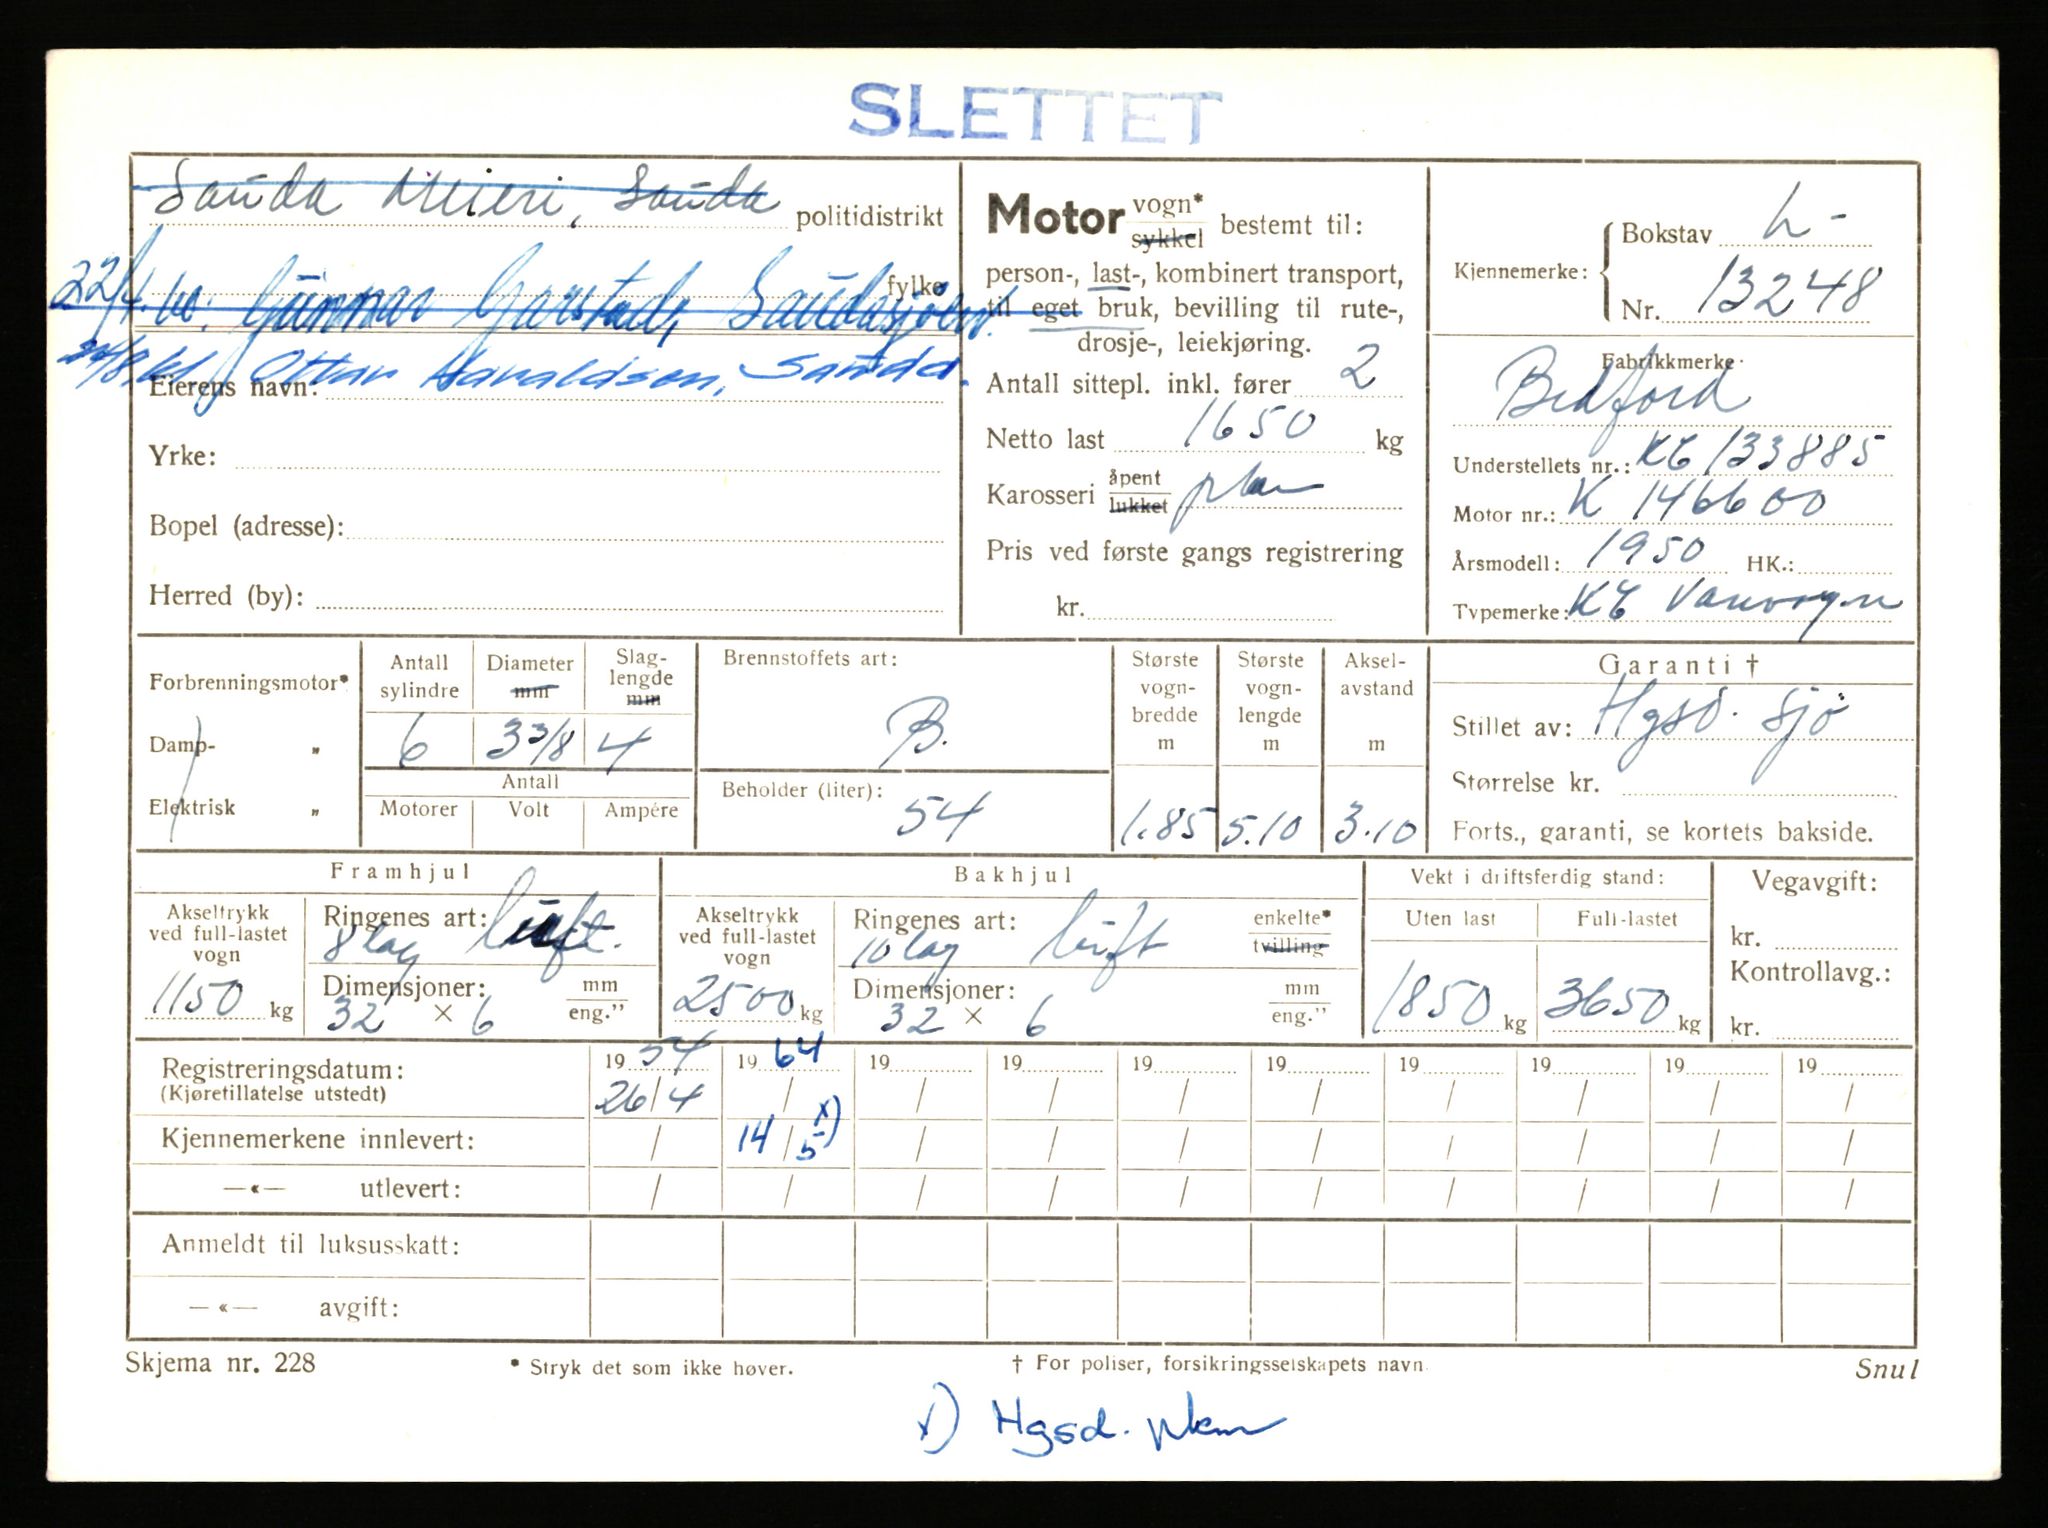 SLETTET
Sauda Meieri, Sauda politidistrikt
22/4.60. Gunnar Garstad, Saudasjøen. fylke
Ottar Haraldsen, Sauda.
Eierens navn:
Yrke:
Bopel (adresse):
Herred (by):
Motor vogn* sykkel bestemt til:
person-, last-, kombinert transport,
til eget bruk, bevilling til rute-,
drosje-, leiekjøring.
Antall sittepl. inkl. fører 2
Netto last 1650 kg
Karosseri åpent lukket plan
Pris ved første gangs registrering
kr.
Kjennemerke: Bokstav L-
Nr. 13248
Fabrikkmerke
Bedford
Understellets nr.: KC 133885
Motor nr.: K 146600
Årsmodell: 1950 HK.:
Typemerke: KC Varevogn
Forbrenningsmotor*
Damp- „
Elektrisk „
Antall sylindre 6
Diameter mm 3 3/8
Slaglengde mm 4
Antall
Motorer Volt Ampére
Brennstoffets art:
B.
Beholder (liter):
54
Største vognbredde m 1.85
Største vognlengde m 5.10
Akselavstand m 3.10
Garanti †
Stillet av: Hgsd. Sjø
Størrelse kr.
Forts., garanti, se kortets bakside.
Framhjul
Akseltrykk ved full-lastet vogn 1150 kg
Ringenes art: luft.
8 lag
Dimensjoner: mm eng."
32 × 6
Bakhjul
Akseltrykk ved full-lastet vogn 2500 kg
Ringenes art: luft enkelte* tvilling
10 lag
Dimensjoner: mm eng."
32 × 6
Vekt i driftsferdig stand:
Uten last Full-lastet
1850 kg 3650 kg
Vegavgift:
kr.
Kontrollavg.:
kr.
Registreringsdatum: 19 54 19 64 19 19 19 19 19 19 19 19
(Kjøretillatelse utstedt) 26/4 / / / / / / / / /
Kjennemerkene innlevert: / 14/5 x) / / / / / / / /
—«— utlevert: / / / / / / / / / /
Anmeldt til luksusskatt:
—«— avgift:
Skjema nr. 228 * Stryk det som ikke høver. † For poliser, forsikringsselskapets navn Snul
x) Hgsd. pkm